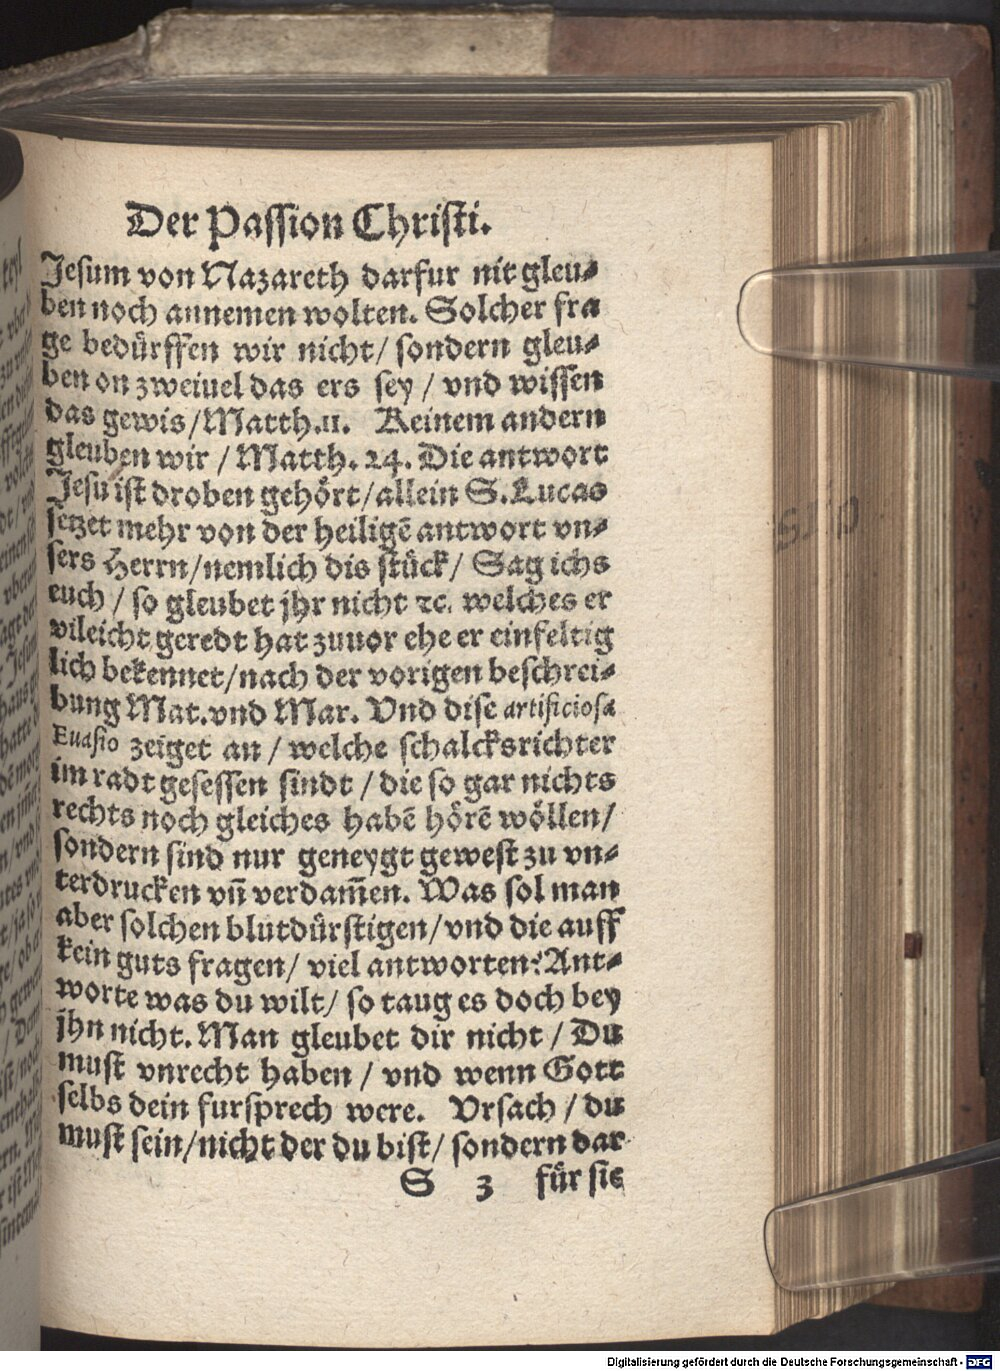 Der Passion Christi.
Jesum von Nazareth darfur nit gleu⸗
ben noch annemen wolten. Solcher fra
ge bedürffen wir nicht/ sondern gleu⸗
ben on zweiuel das ers sey / vnd wissen
das gewis/Matth.11. Keinem andern
gleuben wir / Matth. 24. Die antwort
Jesu ist droben gehört/allein S.Lucas
setzet mehr von der heiligē antwort vn⸗
sers Herrn/nemlich dis stück/ Sag ichs
euch / so gleubet jhr nicht ꝛc. welches er
vileicht geredt hat zuuor ehe er einfeltig
lich bekennet/nach der vorigen beschrei⸗
bung Mat.vnd Mar. Vnd dise artificiosa
Euasio zeiget an / welche schalcksrichter
im radt gesessen sindt / die so gar nichts
rechts noch gleiches habē hörē wöllen/
sondern sind nur geneygt gewest zu vn⸗
terdrucken vn̄ verdam̄en. Was sol man
aber solchen blutdürstigen/vnd die auff
kein guts fragen/ viel antworten? Ant⸗
worte was du wilt/ so taug es doch bey
jhn nicht. Man gleubet dir nicht / Du
must vnrecht haben / vnd wenn Gott
selbs dein fursprech were. Vrsach / du
must sein/nicht der du bist/ sondern dar
S 3 für sie
Digitalisierung gefördert durch die Deutsche Forschungsgemeinschaft - DFG